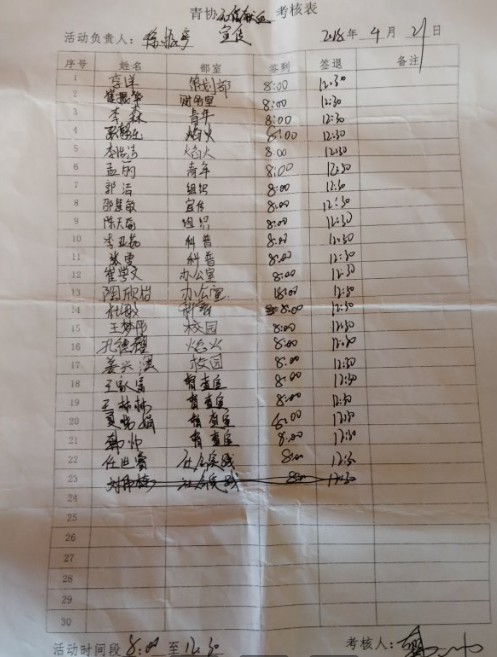 青协 考核表
活动负责人： 宣传 2018年4月21日
序号 姓名 部室 签到 签退 备注
1 李洋 策划部 8:00 12:30
2 8:00 12:30
3 李森 青年 8:00 12:30
4 焰火 8:00 12:30
5 焰火 8:00 12:30
6 青年 8:00 12:30
7 郭洁 组织 8:00 12:30
8 邵慧敏 宣传 8:00 12:30
9 陈天 组织 8:00 12:30
10 李亚茹 科普 8:00 12:30
11 张雪 科普 8:00 12:30
12 崔学文 办公室 8:00 12:30
13 陶欣 办公室 8:00 12:30
14 杜敏 科普 8:00 12:30
15 王梦 校园 8:00 12:30
16 孔德 焰火 8:00 12:30
17 姜兴 校园 8:00 12:30
18 督查室 8:00 12:30
19 王林林 督查室 8:00 12:30
20 夏 娟 督查室 8:00 12:30
21 韩帅 督查室 8:00 12:30
22 任 社会实践 8:00 12:30
23 社会实践 8:00 12:30
24
25
26
27
28
29
30
活动时间段 8:00 至 12:30 考核人：